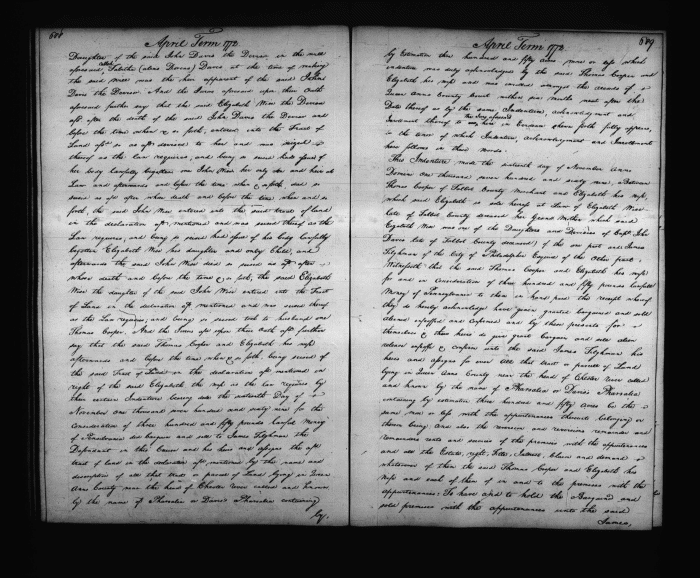 688
April Term 1772.
Daughter of the said John Davis the Devisor in the will
aforesaid called Tabitha (alias Dorcas) Davis at the time of making
the said Will was the heir apparent of the said John
Davis the Devisor. And the Jurors aforesaid upon their Oath
aforesaid further say that the said Elizabeth Wise the Devisee
afsd after the death of the said John Davis the Devisor and
before the time when &c so forth, entered into the Tract of
Land afsd so as afsd devised to her and was seized
thereof as the Law requires, and being so seized had issue of
her body lawfully begotten one John Wise her only son and heir at
Law and afterwards and before the time when &c so forth, died so
seized as afsd after whose death and before the time when and so
forth, the said John Wise entered into the said tract of land
in the declaration afsd mentioned and was seized thereof as the
Law requires, and being so seized had issue of his body lawfully
begotten Elizabeth Wise his daughter and only Child, and
afterwards the said John Wise died so seized as afsd after
whose death and before the time &c so forth, the said Elizabeth
Wise the daughter of the said John Wise entered into the Tract
of Land in the declaration afsd mentioned and was seized thereof
as the Law requires, and being so seized took to husband one
Thomas Cooper. And the Jurors afsd upon their Oath afsd further
say that the said Thomas Cooper and Elizabeth his wife
afterwards and before the time when &c so forth being seized of
the said Tract of Land in the declaration afsd mentioned in
right of the said Elizabeth the wife as the Law requires by
their certain Indenture bearing date the sixteenth Day of
November one thousand seven hundred and sixty nine for the
Consideration of three hundred and fifty pounds lawful Money
of Pensilvania did bargain and sell to James Tilghman the
Defendant in this Cause and his heirs and assigns the afsd
tract of land in the declaration afsd mentioned by the name and
description of all that tract or parcel of Land lying in Queen
Ann County near the head of Chester River called and known
by the name of Pharsalia or Davis's Pharsalia containing
by
689
April Term 1772.
by Estimation three hundred and fifty acres more or less which
indenture was duly acknowledged by the said Thomas Cooper and
Elizabeth his wife and was enrolled amongst the records of
Queen Anns County Court within six months next after the
Date thereof as by the same Indenture, acknowledgment and
Inrolment thereof to the Jury aforesaid here in Evidence shown forth fully appears,
the tenor of which Indenture, acknowledgment and Inrolments
here follows in these words.
This Indenture made the sixteenth day of November Anno
Domini one thousand seven hundred and sixty nine, Between
Thomas Cooper of Talbot County Merchant and Elizabeth his wife,
which said Elizabeth is sole heiress at Law of Elizabeth Wise
late of Talbot County deceased her Grand Mother which said
Elizabeth Wise was one of the Daughters and Devisees of Capt. John
Davis late of Talbot County deceased, of the one part and James
Tilghman of the City of Philadelphia Esquire of the other part,
Witnesseth that the said Thomas Cooper and Elizabeth his wife
for and in Consideration of three hundred and fifty pounds lawful
Money of Pennsylvania to them in hand paid the receipt whereof
they do hereby acknowledge have given granted bargained and sold
aliened infeoffed and confirmed and by these presents for
themselves & their heirs do give grant bargain and sell alien
release infeoff & confirm unto the said James Tilghman his
heirs and assigns for ever All that tract or parcel of Land
lying in Queen Anns County near the head of Chester River called
and known by the name of Pharsalia or Davis's Pharsalia
containing by estimation three hundred and fifty acres be the
same more or less with the appurtenances thereto belonging or
therein being. And also the reversion and reversions remainder and
remainders rents and services of the premises with the appurtenances
and all the Estate, right, Title, Interest, Claim and demand
whatsoever of them the said Thomas Cooper and Elizabeth his
wife and each of them of in and to the premises with the
appurtenances. To have and to hold the Bargained and
sold premises with the appurtenances unto the said
James,